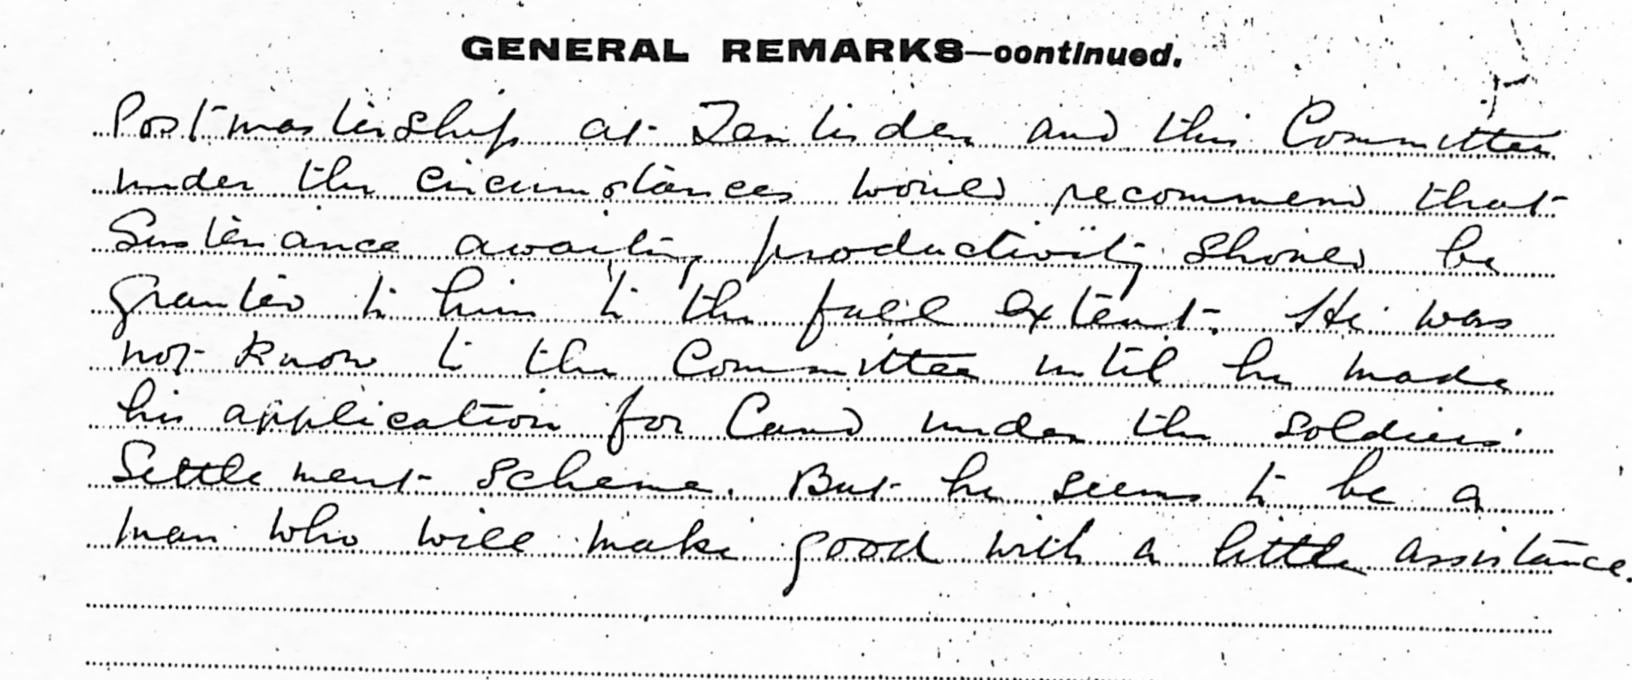 GENERAL REMARKS—continued.
Postmastership at and this Committee
under the circumstances would recommend that
Sustenance awaiting productivity should be
granted to him to the full extent. He was
not know to the Committee until he made
his application for Land under the Soldiers'
Settlement Scheme. But he seems to be a
man who will make good with a little assistance.